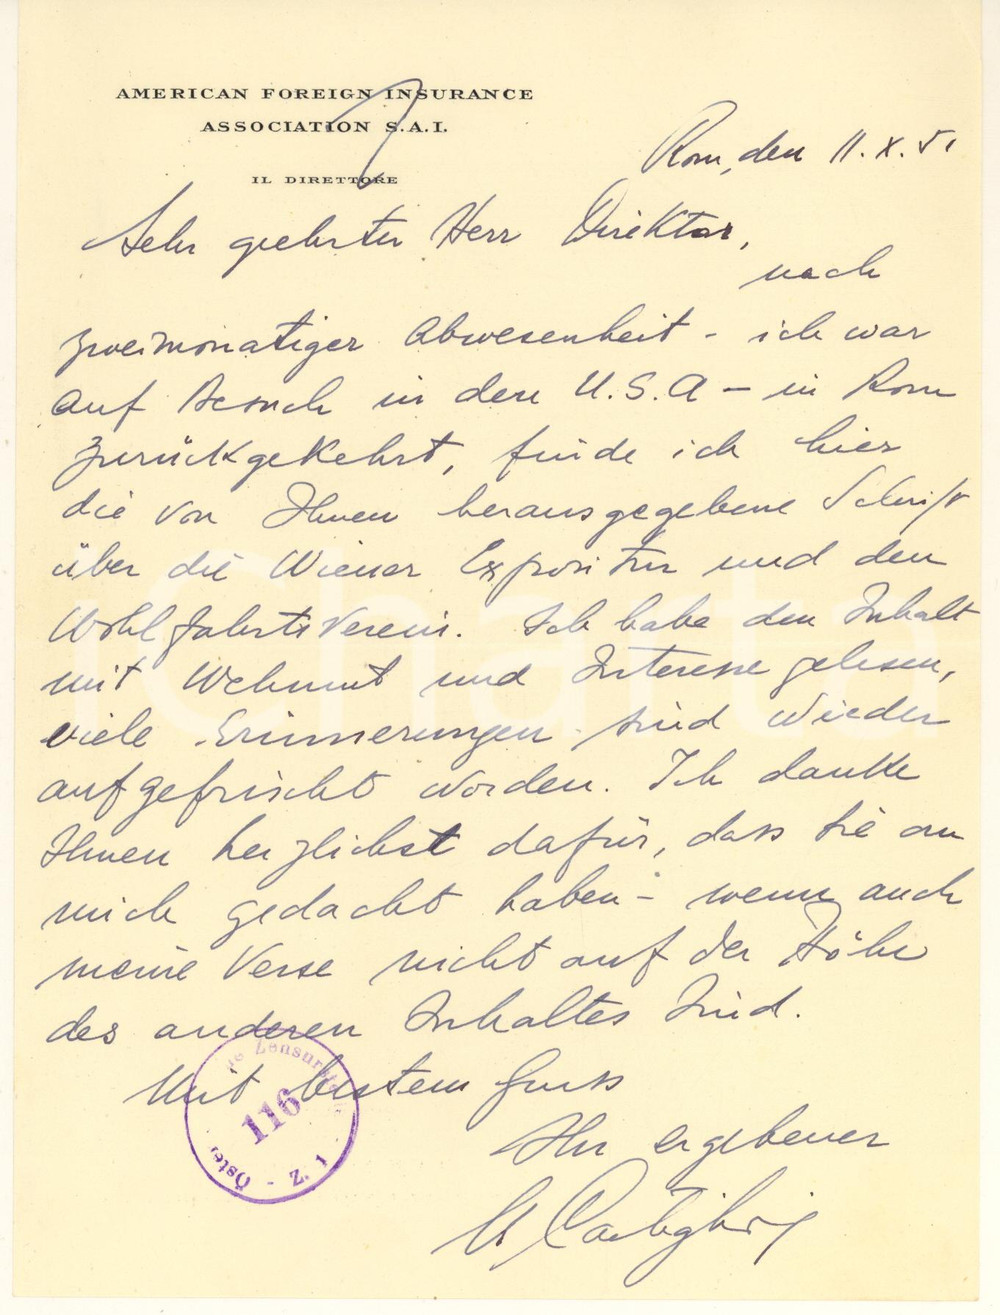 AMERICAN FOREIGN INSURANCE
ASSOCIATION S.A.I.
IL DIRETTORE
Rom, den 11. X. 51
Sehr geehrter Herr Direktor,
nach
zweimonatiger Abwesenheit - ich war
auf Besuch in den U.S.A - in Rom
zurückgekehrt, finde ich hier
die von Ihnen herausgegebene Schrift
über die Wiener Expositur und den
Wohlfahrtsverein. Ich habe den Inhalt
mit Wehmut und Interesse gelesen,
viele Erinnerungen sind wieder
aufgefrischt worden. Ich danke
Ihnen herzlichst dafür, dass Sie an
mich gedacht haben - wenn auch
meine Verse nicht auf der Höhe
des anderen Inhaltes sind.
Mit bestem Gruss
Ihr ergebener
Zensurstelle
116
Öster
Z. 1
iCharta